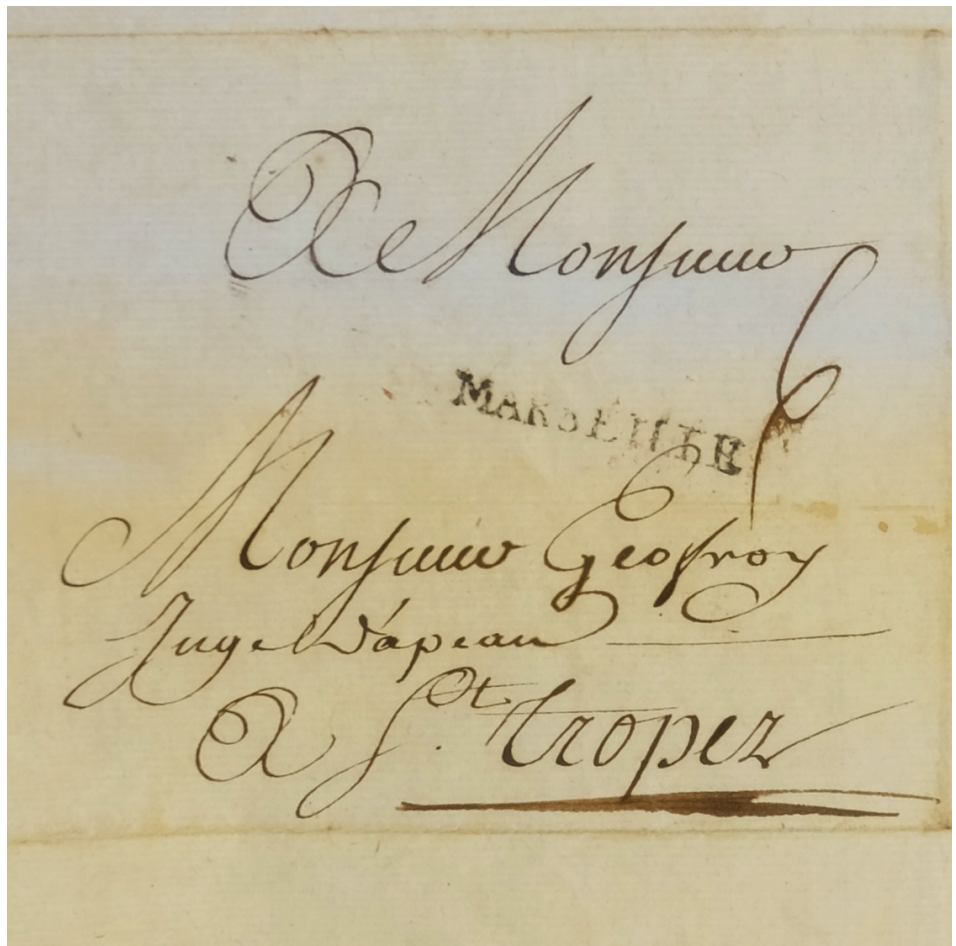 A Monsieur
6
MARSEILLE
Monsieur Geoffroy
Juge d'apeau
A St. tropez